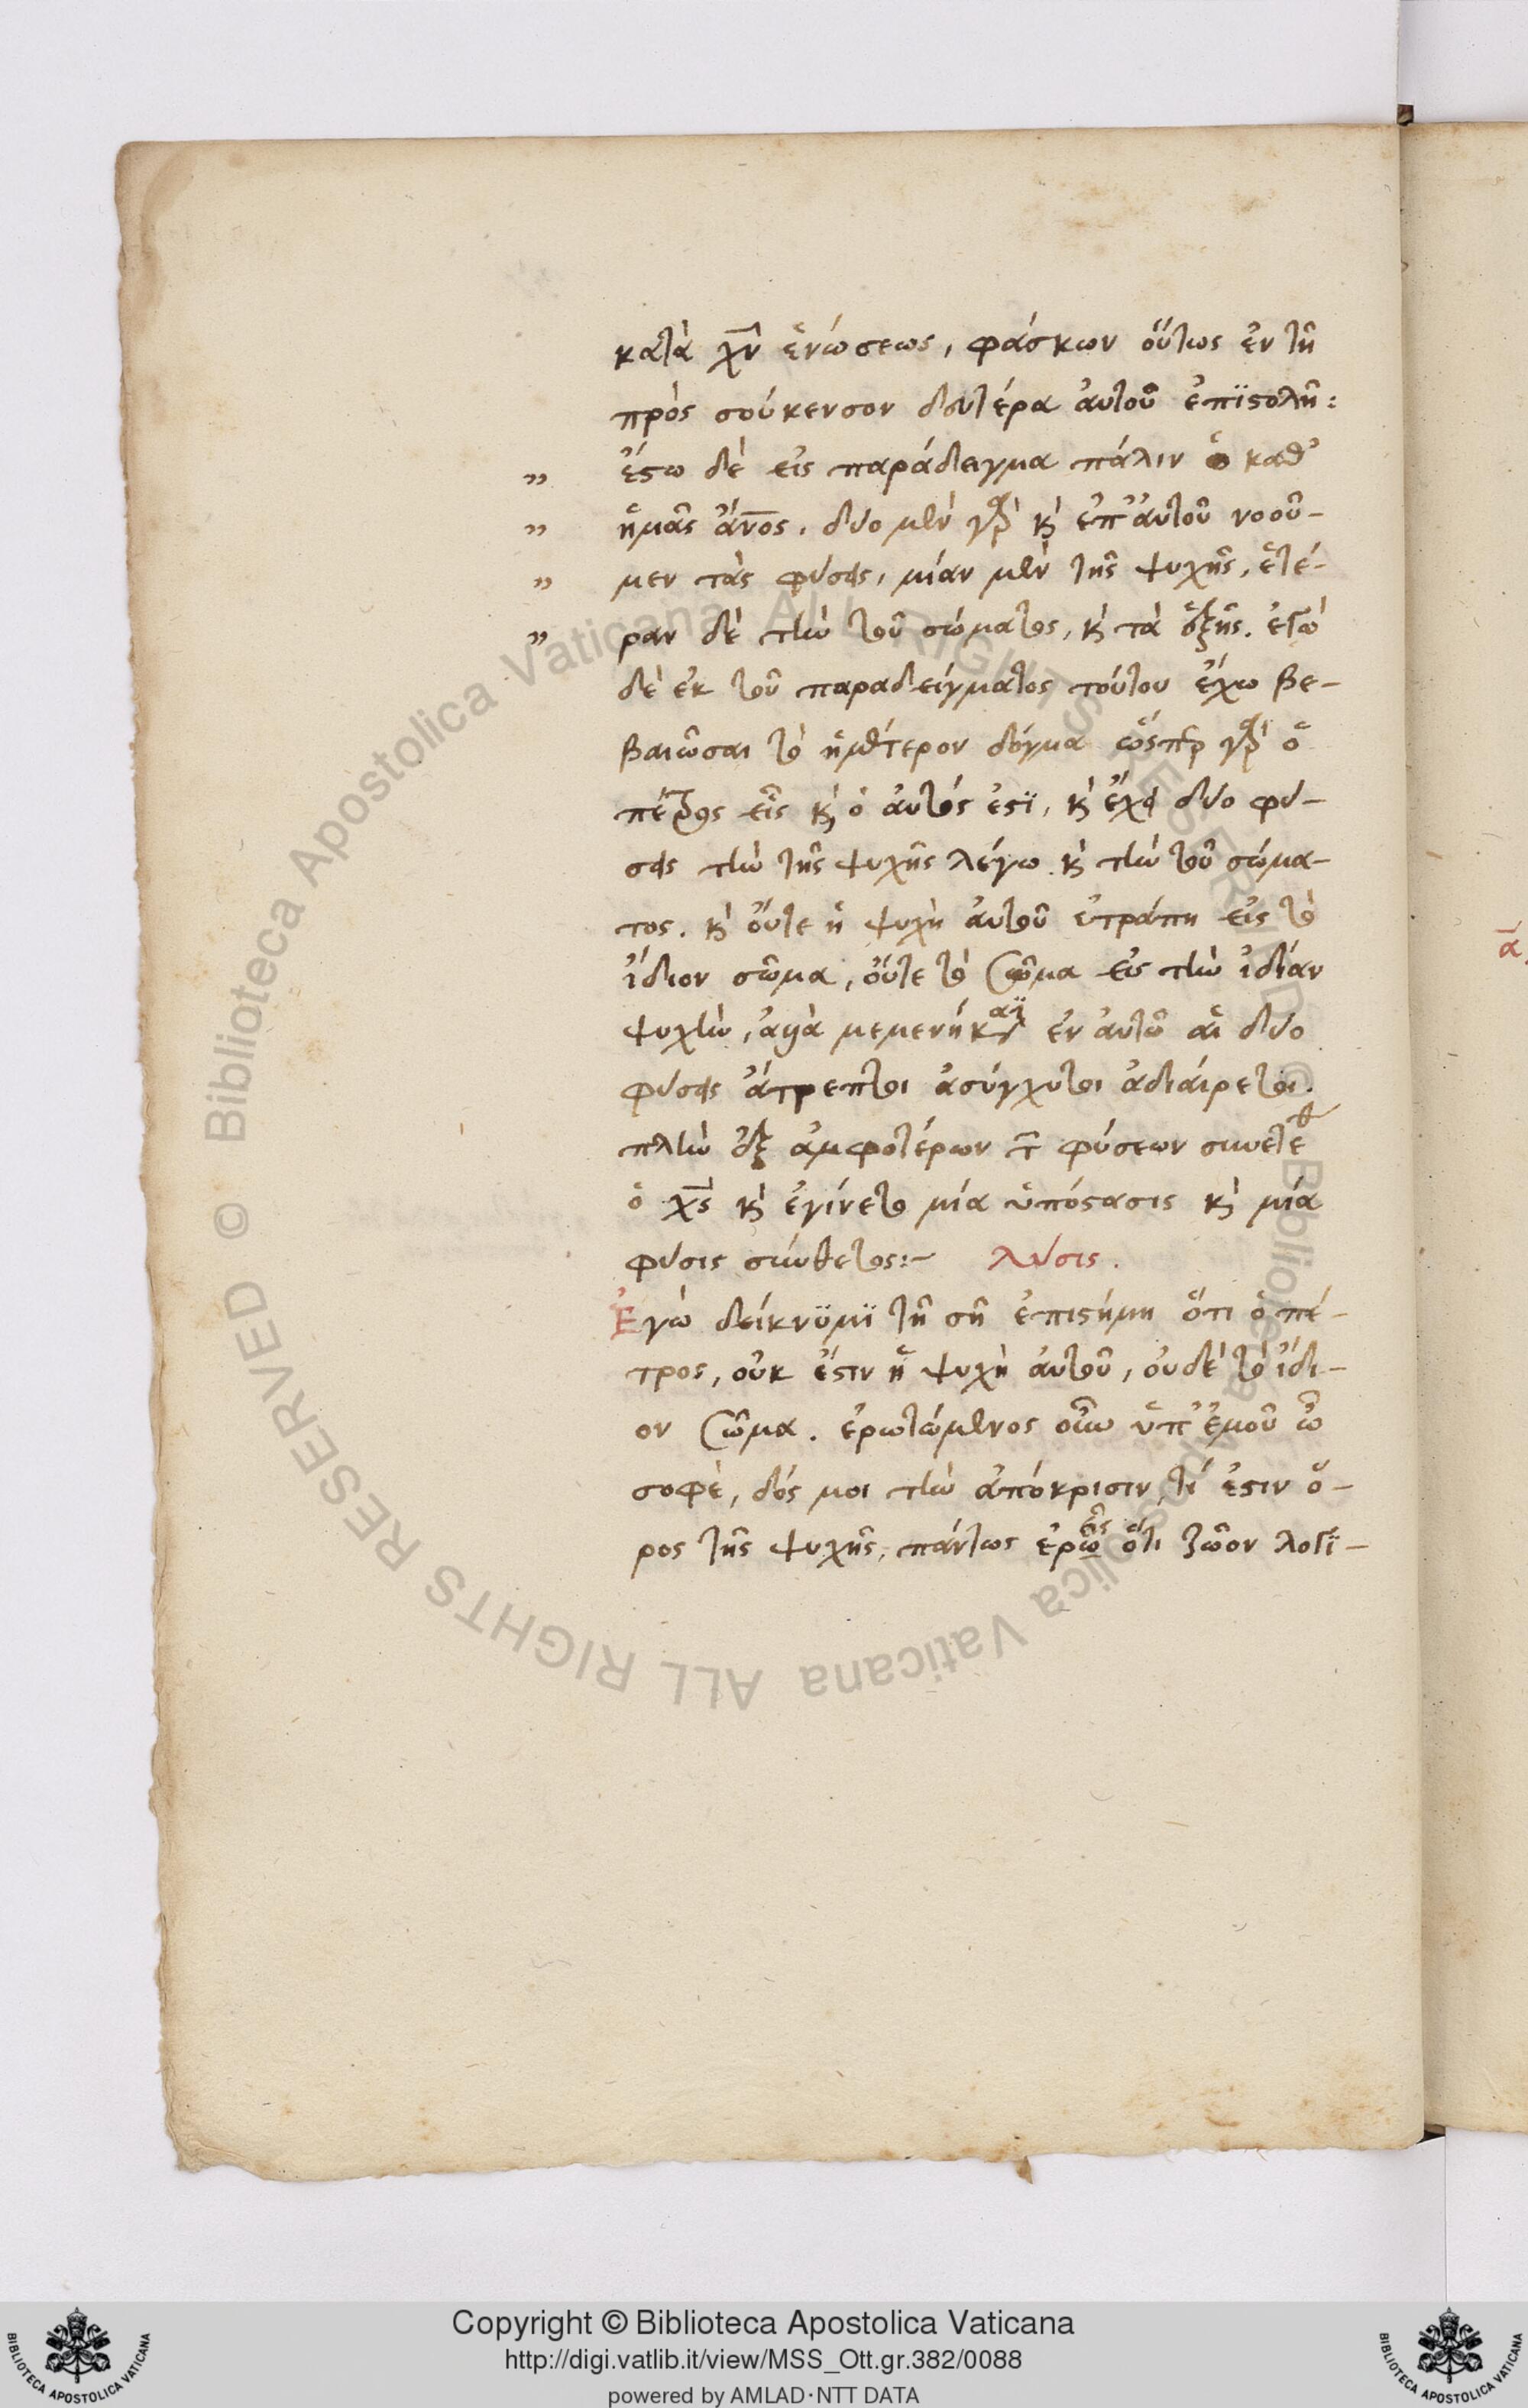 κατὰ χν ἑνώσεως, φάσκων οὕτως ἐν τῆ
πρὸς σούκενσον δευτέρα αὐτοῦ ἐπϊστολῆ:
„ ἔστω δὲ εἰς παράδειγμα πάλιν ὁ καθ'
„ ἡμᾶς ἄνος. δύο μὲν γὰρ κ ἐπ' αὐτοῦ νοοῦ-
„ μεν τὰς φύσεις, μίαν μὲν τῆς ψυχῆς, ἑτέ-
„ ραν δὲ τὴν τοῦ σώματος, κ τὰ ἑξῆς. ἐγὼ
δὲ ἐκ τοῦ παραδείγματος τούτου ἔχω βε-
βαιῶσαι τὸ ἡμέτερον δόγμα ὥσπερ γὰρ ὁ
πέτρος εἷς κ ὁ αὐτός ἐστϊ, κ ἔχει δύο φύ-
σεις τὴν τῆς ψυχῆς λέγω. κ τὴν τοῦ σώμα-
τος. κ οὔτε ἡ ψυχὴ αὐτοῦ ἐτράπη εἰς τὸ
ἴδιον σῶμα, οὔτε τὸ σῶμα εἰς τὴν ἰδίαν
ψυχὴν, ἀλλὰ μεμενήκασϊ ἐν αὐτῶ αἱ δύο
φύσεις ἄτρεπτοι ἀσύγχυτοι ἀδιαίρετοι.
πλὴν ἐξ ἀμφοτέρων τ φύσεων συνετέθ
ὁ χς κ ἐγίνετο μία ὑπόστασις κ μία
φύσις σύνθετος:- λύσις.
Ἐγὼ δείκνϋμϊ τῆ σῆ ἐπιστήμη ὅτι ὁ πέ-
τρος, οὐκ ἔστιν ἡ ψυχὴ αὐτοῦ, οὐδὲ τὸ ἴδι-
ον σῶμα. ἐρωτώμενος οὖν ὑπ' ἐμοῦ ὦ
σοφὲ, δός μοι τὴν ἀπόκρισιν, τί ἐστιν ὅ-
ρος τῆς ψυχῆς, πάντως ἐρεῖς ὅτι ζῶον λογϊ-
Copyright © Biblioteca Apostolica Vaticana
http://digi.vatlib.it/view/MSS_Ott.gr.382/0088
powered by AMLAD·NTT DATA